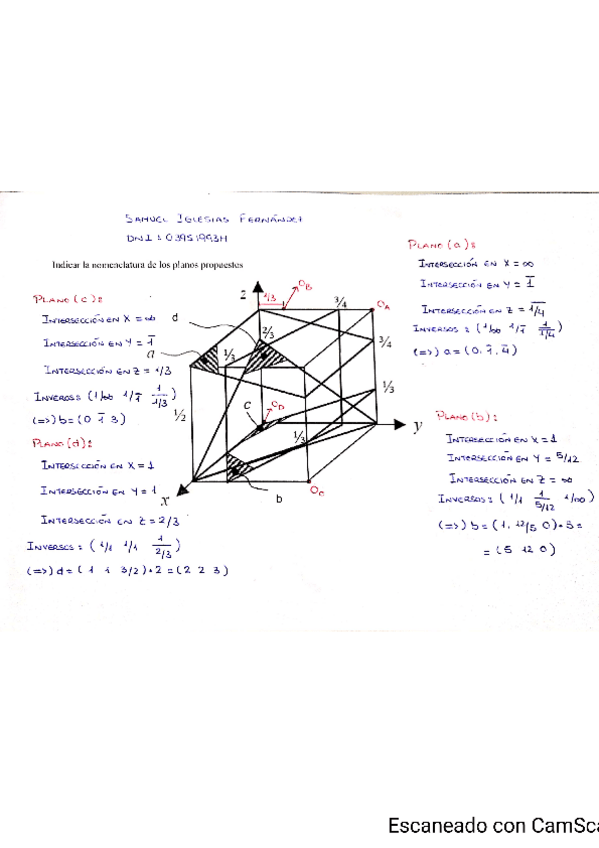 SAMUEL IGLESIAS FERNÁNDEZ
DNI: 03951993H
Indicar la nomenclatura de los planos propuestos
PLANO (c):
INTERSECCIÓN EN X = ∞
INTERSECCIÓN EN Y = 1̅
INTERSECCIÓN EN Z = 1/3
INVERSOS: (1/∞ 1/1̅ 1/1/3)
(=>) b = (0 1̅ 3)
PLANO (d):
INTERSECCIÓN EN X = 1
INTERSECCIÓN EN Y = 1
INTERSECCIÓN EN Z = 2/3
INVERSOS: (1/1 1/1 1/2/3)
(=>) d = (1 1 3/2) · 2 = (2 2 3)
2
1/3
O_B
3/4
O_A
d
2/3
a
1/3
3/4
1/3
1/2
c
O_D
1/3
y
x
b
O_C
PLANO (a):
INTERSECCIÓN EN X = ∞
INTERSECCIÓN EN Y = 1̅
INTERSECCIÓN EN Z = 1̅/4̅
INVERSOS: (1/∞ 1/1̅ 1/1̅/4̅)
(=>) a = (0, 1̅, 4̅)
PLANO (b):
INTERSECCIÓN EN X = 1
INTERSECCIÓN EN Y = 5/12
INTERSECCIÓN EN Z = ∞
INVERSOS: (1/1 1/5/12 1/∞)
(=>) b = (1, 12/5 0) · 5 =
= (5 12 0)
Escaneado con CamSca